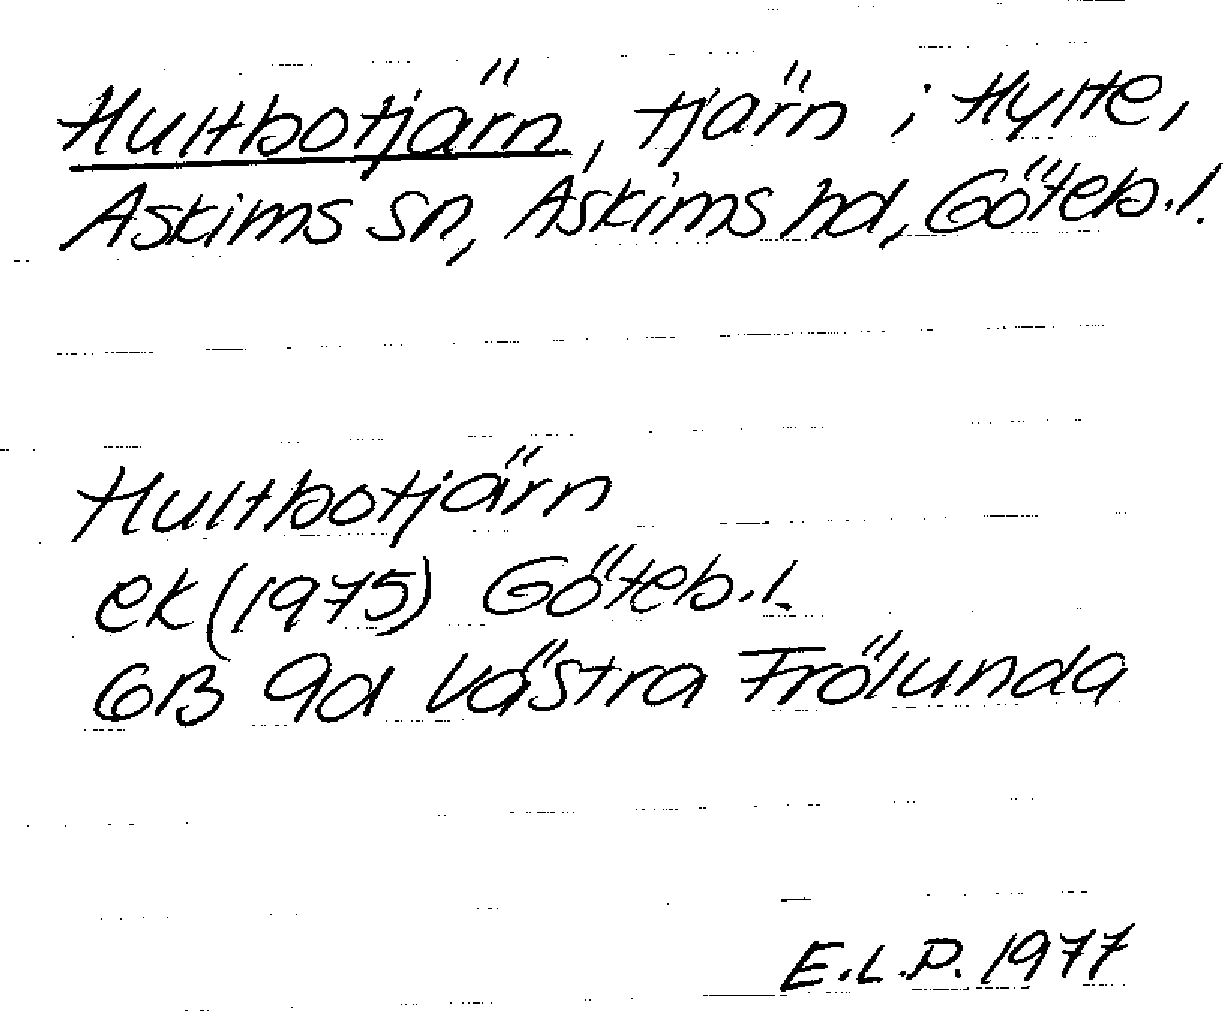 Hultbotjärn, tjärn i Hylte,
Askims sn, Askims hd, Göteb.l.
Hultbotjärn
ek(1975) Göteb.l.
6B 9d Västra Frölunda
E.L.P. 1977